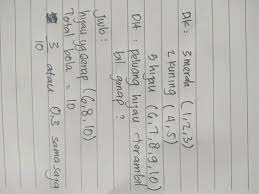 DK: 3 merah (1,2,3)
2 kuning (4,5)
5 hijau (6,7,8,9,10)
Dit: peluang hijau terambil
bl genap?
Jwb:
hijau yg genap (6,8,10)
Total bola = 10
3/10 atau 0.3 sama saja